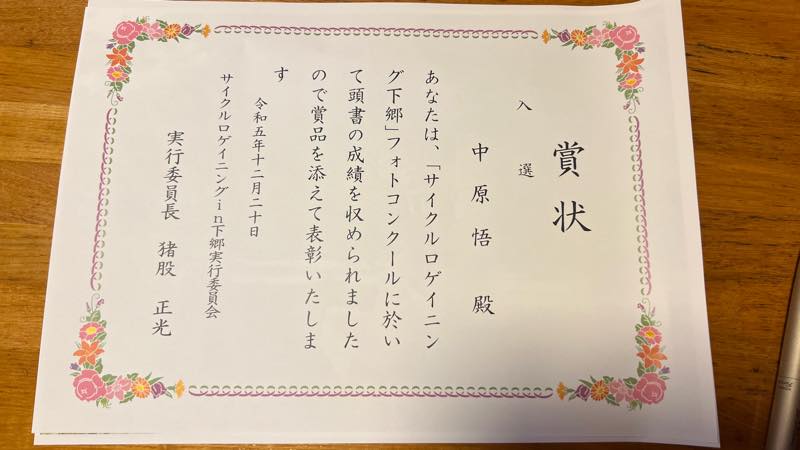 賞状
入選
中原悟 殿
あなたは、「サイクルロゲイニン
グ下郷」フォトコンクールに於い
て頭書の成績を収められました
ので賞品を添えて表彰いたしま
す
令和五年十二月二十日
サイクルロゲイニングin下郷実行委員会
実行委員長 猪股 正光